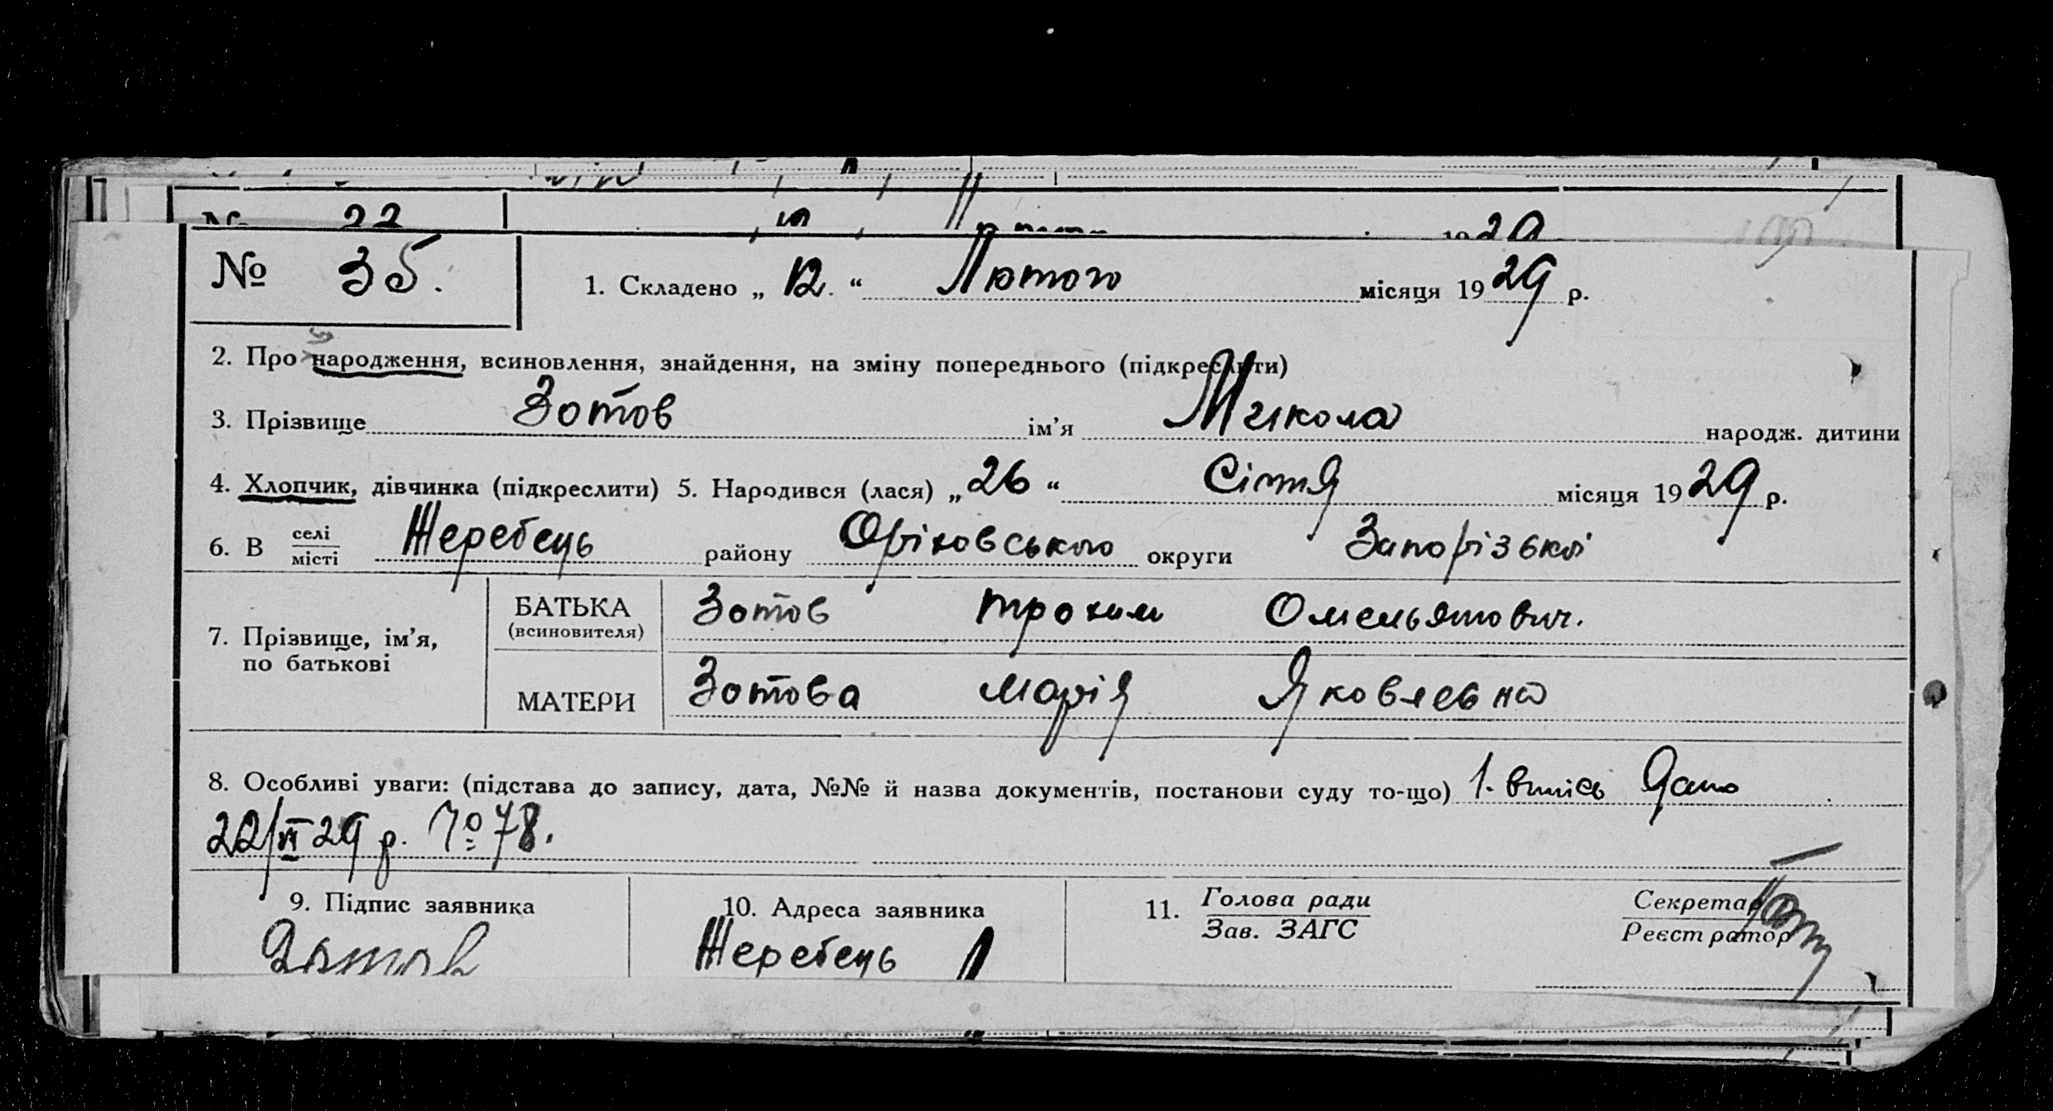 № 22
№ 35. 1. Складено „ 12. “ Лютого місяця 1929 р.
2. Про народження, всиновлення, знайдення, на зміну попереднього (підкреслити)
3. Прізвище Зотов ім’я Микола народж. дитини
4. Хлопчик, дівчинка (підкреслити) 5. Народився (лася) „ 26 “ Січня місяця 1929 р.
6. В селі/місті Жеребець району Оріховського округи Запорізької
7. Прізвище, ім’я, по батькові
БАТЬКА (всиновителя) Зотов Трохим Омельянович.
МАТЕРИ Зотова Марія Яковлевна
8. Особливі уваги: (підстава до запису, дата, №№ й назва документів, постанови суду то-що) 1. випись Дано
22/VI 29 р. № 78.
9. Підпис заявника 10. Адреса заявника 11. Голова ради / Зав. ЗАГС Секретар / Реєстратор
Зотов Жеребець